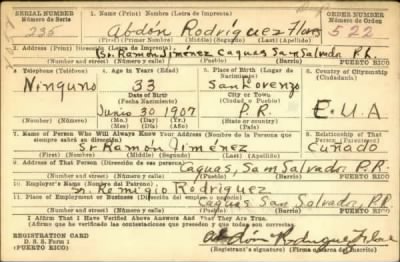 SERIAL NUMBER
Número de Serie
235
1. Name (Print) Nombre (Letra de imprenta)
Abdón Rodríguez Flores
(First-Primer nombre) (Middle-Segundo) (Last-Apellido)
ORDER NUMBER
Número de Orden
522
2. Address (Print) Dirección (Letra de imprenta)
Sr. Ramón Jiménez Caguas, San Salvador, P.R.
(Number and street-Número y calle) (Town-Pueblo) (Barrio) (Municipality-Municipio) PUERTO RICO
3. Telephone (Teléfono)
Ninguno
4. Age in Years (Edad)
33
Date of Birth
(Fecha Nacimiento)
Junio 30 1907
(Mo.) (Day-Día) (Yr.)
5. Place of Birth (Lugar de Nacimiento)
San Lorenzo
City or Town
(Ciudad o Pueblo)
P.R.
(State or Country)
6. Country of Citizenship
(Ciudadanía)
E.U.A
7. Name of Person Who Will Always Know Your Address (Nombre de la Persona que siempre sabrá su dirección)
Sr Ramón Jiménez
(First-Primer nombre) (Middle-Segundo) (Last-Apellido)
8. Relationship of That Person
Cuñado
9. Address of That Person (Dirección de esa persona)
Caguas, San Salvador, P.R.
(Number and street-Número y calle) (Town-Pueblo) (Barrio) (Municipality-Municipio) PUERTO RICO
10. Employer's Name (Nombre del Patrono)
Sr. Remigio Rodríguez
11. Place of Employment or Business
Caguas, San Salvador, P.R.
(Number and street-Número y calle) (Town-Pueblo) (Barrio) (Municipality-Municipio) PUERTO RICO
I Affirm That I Have Verified Above Answers And That They Are True.
(Afirmo que he verificado las contestaciones que preceden y que todas son correctas)
REGISTRATION CARD
D. S. S. Form 1
(TARJETA DE INSCRIPCIÓN)
Abdón Rodríguez Flores
(Registrant's signature) (Firma del Inscrito)